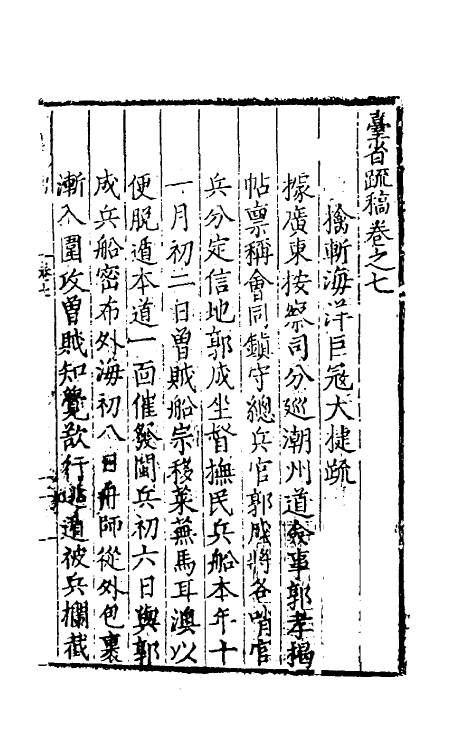 臺省疏稿卷之七
擒斬海洋巨寇大捷疏
據廣東按察司分巡潮州道僉事郭孝揭
帖稟稱會同鎮守總兵官郭成將各哨官
兵分定信地郭成坐督撫民兵船本年十
一月初二日曾賊船䑸移萊蕪馬耳澳以
便脫遁本道一面催發閩兵初六日與郭
成兵船密布外海初八日舟師從外包裹
漸入圍攻曾賊知覺欲行逃遁被兵攔截